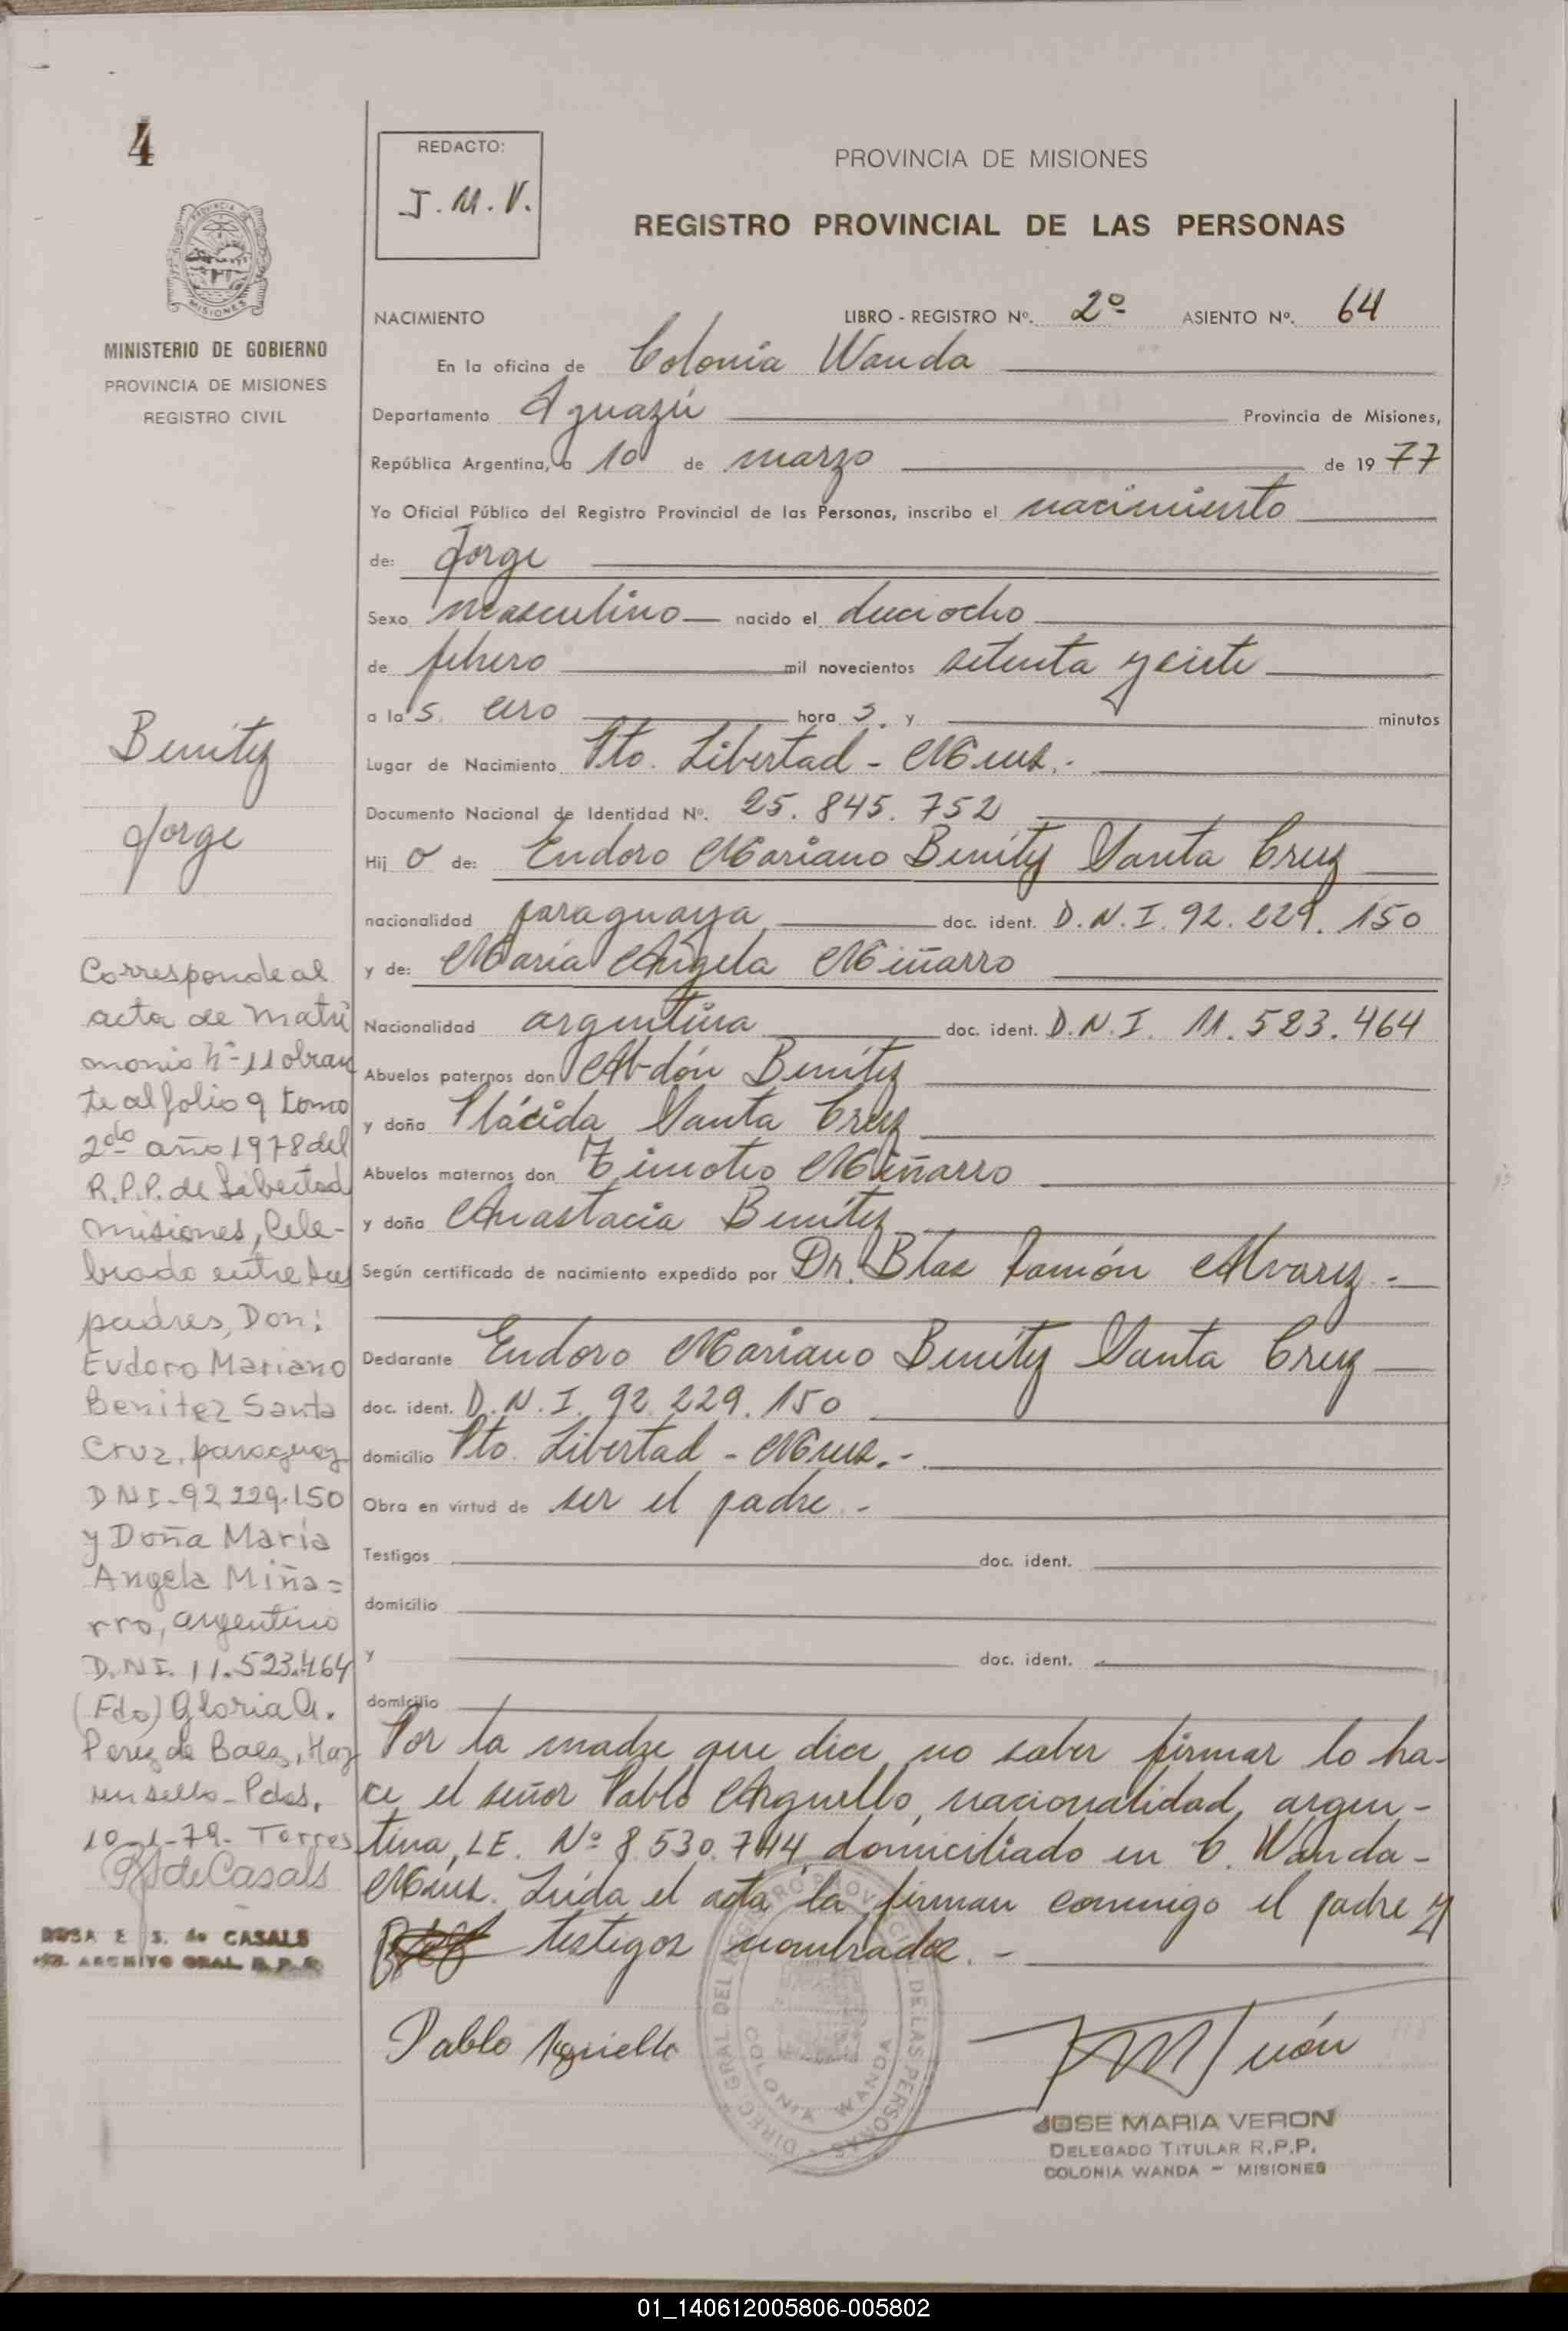 4
REDACTO:
J. M. V.
PROVINCIA DE MISIONES
REGISTRO PROVINCIAL DE LAS PERSONAS
MINISTERIO DE GOBIERNO
PROVINCIA DE MISIONES
REGISTRO CIVIL
NACIMIENTO LIBRO - REGISTRO Nº. 2º ASIENTO Nº. 64
En la oficina de Colonia Wanda
Departamento Iguazú Provincia de Misiones,
República Argentina, a 10 de marzo de 19 77
Yo Oficial Público del Registro Provincial de las Personas, inscribo el nacimiento
de: Jorge
Sexo masculino nacido el dieciocho
de febrero mil novecientos setenta y siete
a la s cero hora s. y minutos
Lugar de Nacimiento Pto. Libertad - Mnes.-
Documento Nacional de Identidad Nº. 25.845.752
Hij o de: Eudoro Mariano Benítez Santa Cruz
nacionalidad paraguaya doc. ident. D.N.I. 92.229.150
y de: María Angela Miñarro
Nacionalidad argentina doc. ident. D.N.I. 11.523.464
Abuelos paternos don Abdón Benítez
y doña Plácida Santa Cruz
Abuelos maternos don Timoteo Miñarro
y doña Anastacia Benítez
Según certificado de nacimiento expedido por Dr. Blas Ramón Alvarez.-
Declarante Eudoro Mariano Benítez Santa Cruz
doc. ident. D.N.I. 92.229.150
domicilio Pto. Libertad - Mnes.-
Obra en virtud de ser el padre.-
Testigos doc. ident.
domicilio
y doc. ident.
domicilio
Por la madre que dice no saber firmar lo ha-
ce el señor Pablo Arguello, nacionalidad argen-
tina, L.E. Nº 8.530.744 domiciliado en C. Wanda-
Mnes. Leída el acta la firman conmigo el padre y
testigos nombrados.-
Benítez
Jorge
Corresponde al
acta de matri
monio Nº 11 obran
te al folio 9 tomo
2do año 1978 del
R.P.P. de Libertad
misiones, Cele-
brado entre sus
padres, Don:
Eudoro Mariano
Benitez Santa
Cruz, paraguay
DNI-92.229.150
y Doña María
Angela Miña=
rro, argentino
D.NI. 11.523.464
(Fdo) Gloria A.
Perez de Baez, Hay
un sello - Pdas.
10-1-79- Torres
de Casals
ROSA E. S. de CASALS
ARCHIVO GRAL. R.P.P.
Pablo Arguello
DIREC. GRAL. DEL REGISTRO PROVINCIAL DE LAS PERSONAS
COLONIA WANDA
JOSE MARIA VERON
DELEGADO TITULAR R.P.P.
COLONIA WANDA - MISIONES
01_140612005806-005802